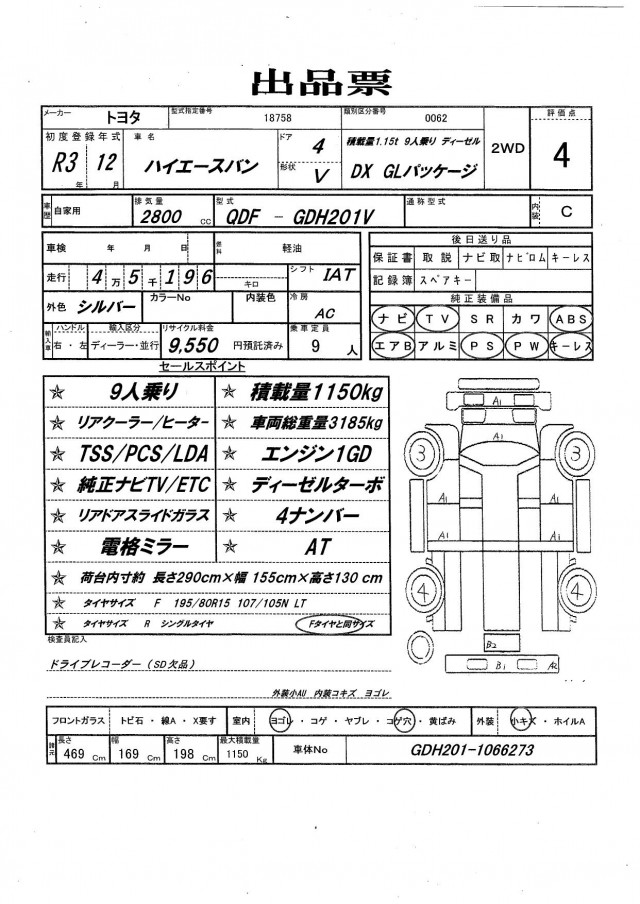 出品票
メーカー トヨタ 型式指定番号 18758 類別区分番号 0062 評価点
初度登録年式 R3年 12月 車名 ハイエースバン ドア 4 形状 V 積載量1.15t 9人乗り ディーゼル DX GLパッケージ 2WD 4
車歴 自家用 排気量 2800 CC 型式 QDF - GDH201V 通称型式 内装 C
車検 年 月 日 燃料 軽油 後日送り品
走行 4万5千196 キロ シフト IAT 保証書 取説 ナビ取 ナビロム キーレス
記録簿 スペアキー
外色 シルバー カラーNo 内装色 冷房 AC 純正装備品
ナビ TV SR カワ ABS
輸入車 ハンドル 右・左 輸入区分 ディーラー・並行 リサイクル料金 9,550 円預託済み 乗車定員 9 人 エアB アルミ PS PW キーレス
セールスポイント
☆ 9人乗り ☆ 積載量1150kg
☆ リアクーラー/ヒーター ☆ 車両総重量3185kg
☆ TSS/PCS/LDA ☆ エンジン1GD
☆ 純正ナビTV/ETC ☆ ディーゼルターボ
☆ リアドアスライドガラス ☆ 4ナンバー
☆ 電格ミラー ☆ AT
☆ 荷台内寸約 長さ290cm×幅 155cm×高さ130 cm
☆ タイヤサイズ F 195/80R15 107/105N LT
☆ タイヤサイズ R シングルタイヤ Fタイヤと同サイズ
A1
A1
3 3
A1 A1
A1 A1
4 4
B2
B1 A2
検査員記入
ドライブレコーダー(SD欠品)
外装小AU 内装コキズ ヨゴレ
フロントガラス トビ石・線A・X要す 室内 ヨゴレ・コゲ・ヤブレ・コゲ穴・黄ばみ 外装 小キズ・ホイルA
諸元 長さ 469 Cm 幅 169 Cm 高さ 198 Cm 最大積載量 1150 Kg 車体No GDH201-1066273